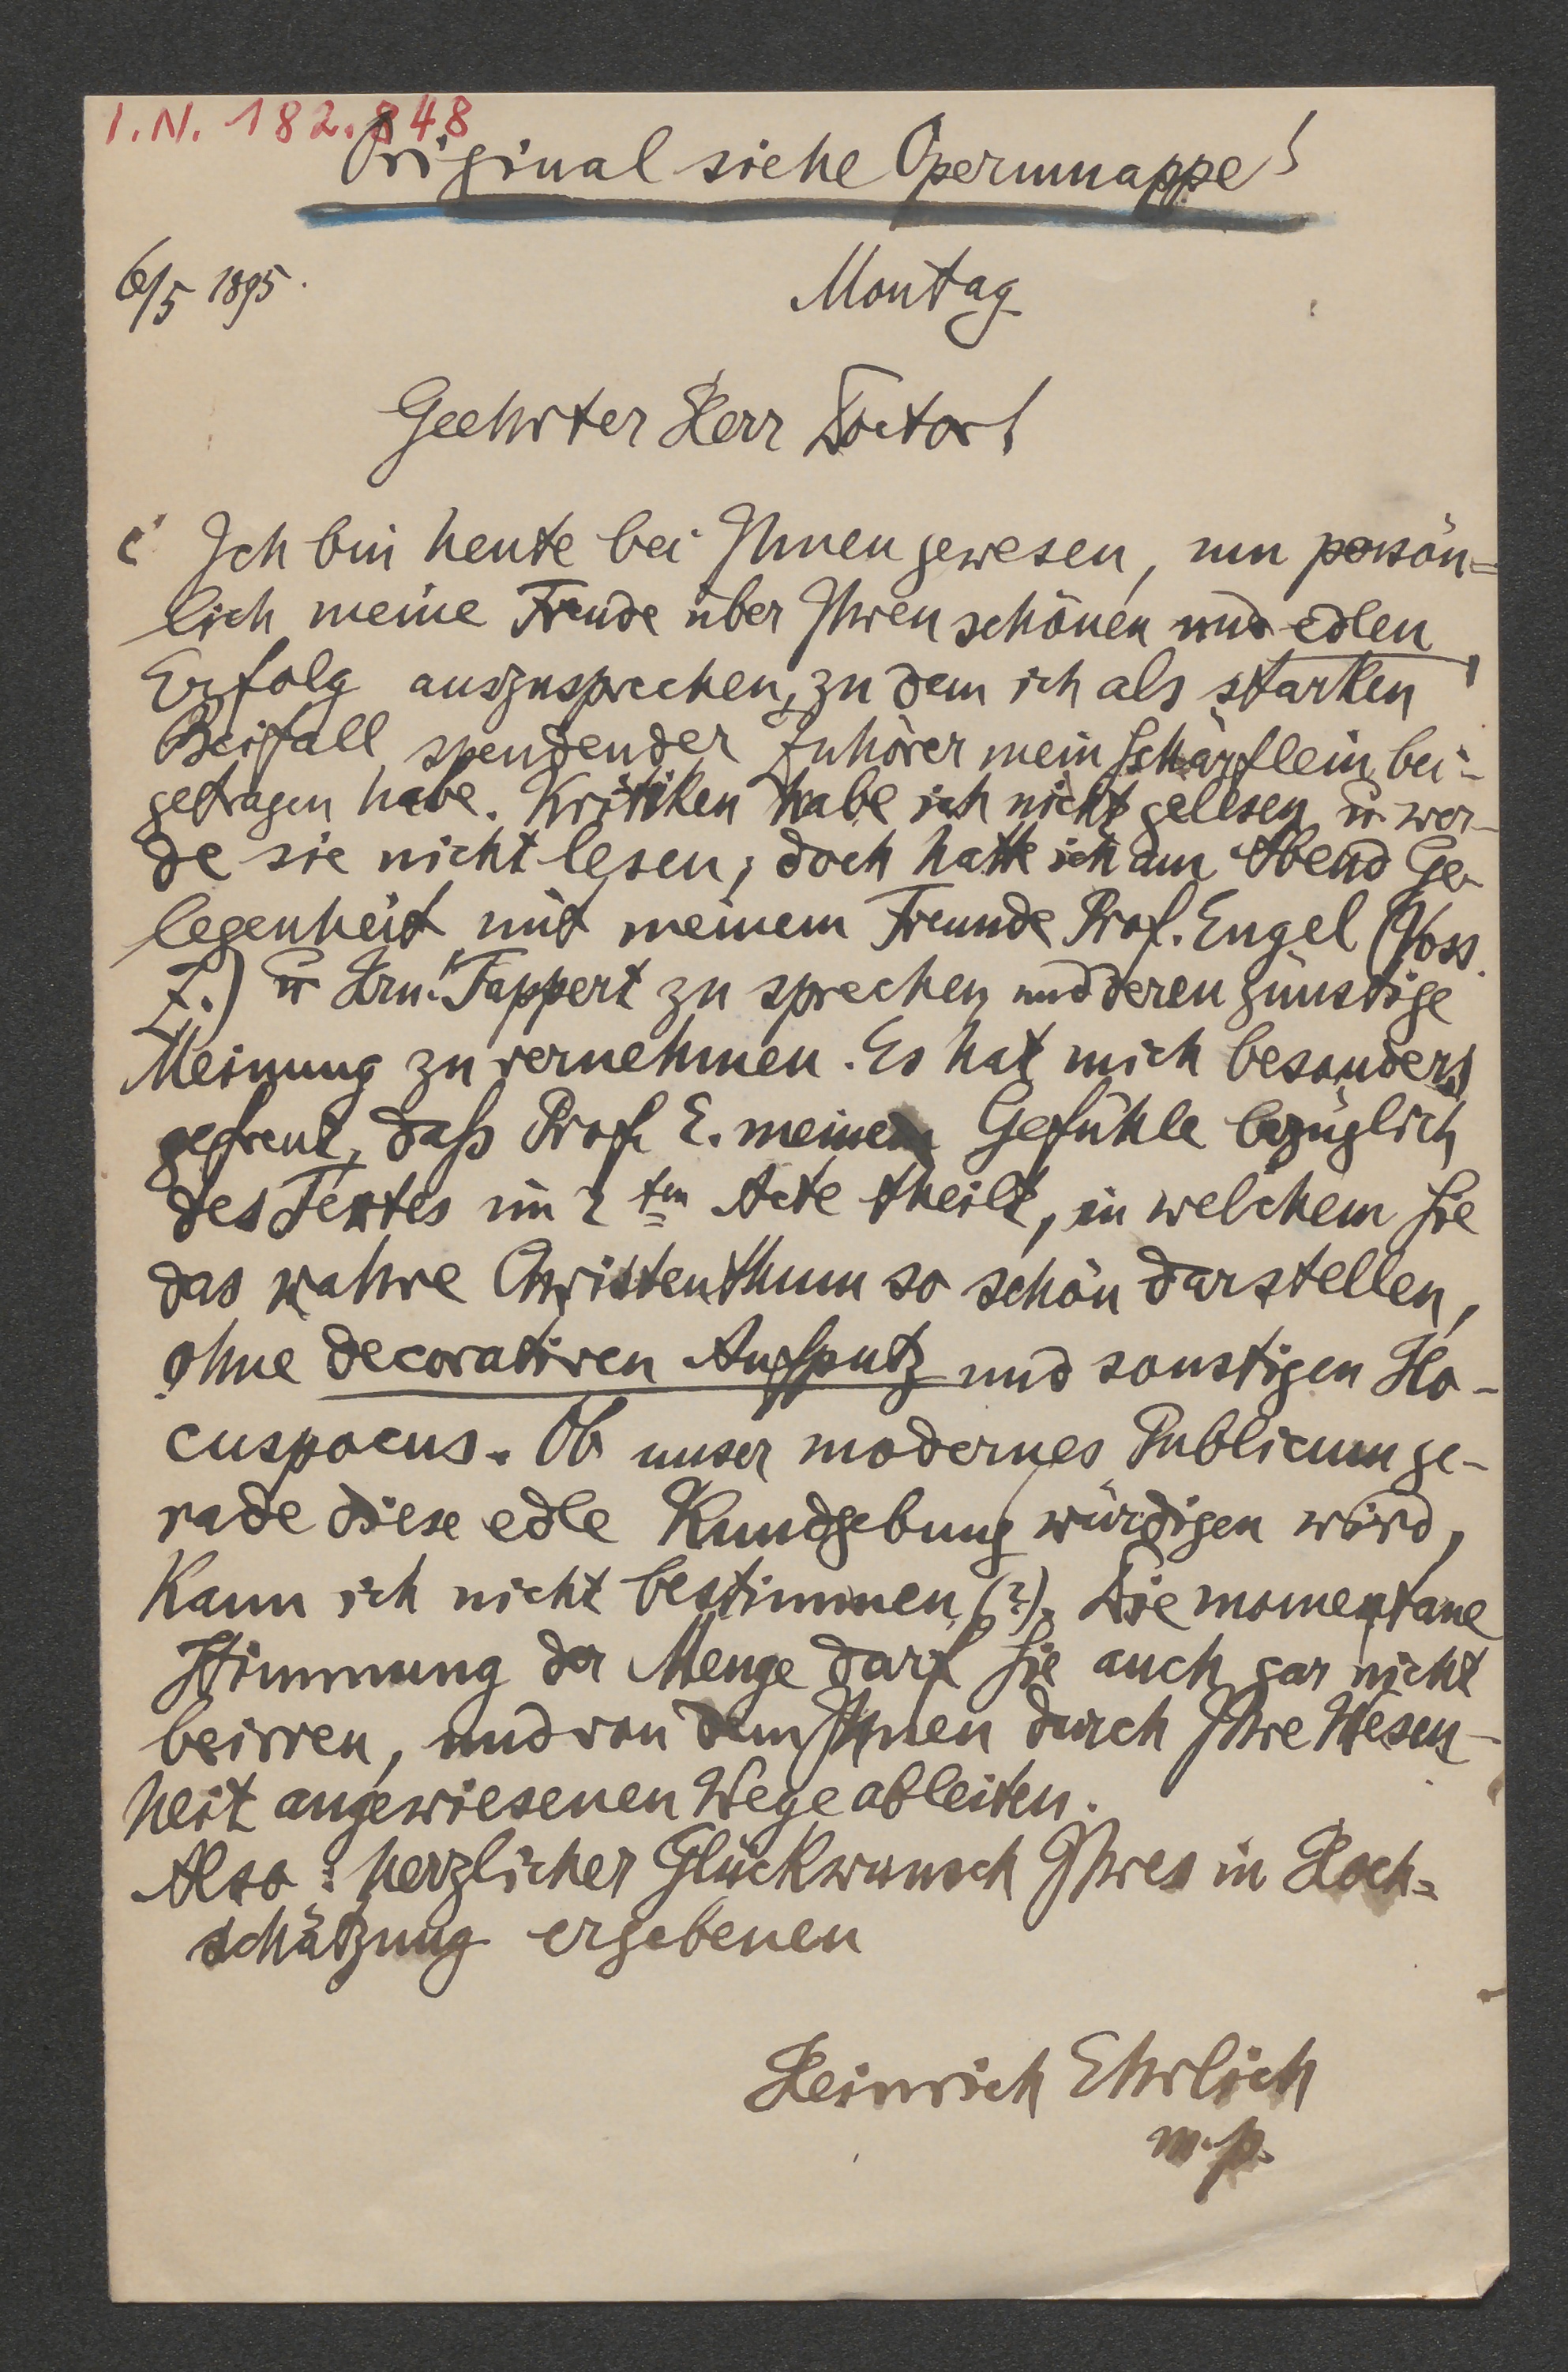 I.N. 182.848
Original siehe Opernmappe!
6/5 1895.
Montag
Geehrter Herr Doctor!
Ich bin heute bei Ihnen gewesen, um persön=
lich meine Freude über Ihren schönen und edlen
Erfolg auszusprechen, zu dem ich als starken
Beifall spendender Zuhörer mein Schärflein bei-
getragen habe. Kritiken habe ich nicht gelesen u. wer-
de sie nicht lesen; doch hatte ich am Abend Ge-
legenheit mit meinem Freunde Prof. Engel (Voss.
Z.) u. Hrn. Tappert zu sprechen und deren günstige
Meinung zu vernehmen. Es hat mich besonders
gefreut, daß Prof. E. meine Gefühle bezüglich
des Textes im 2ten Acte theilt, in welchem Sie
das wahre Christenthum so schön darstellen,
ohne decorativen Aufputz und sonstigen Ho-
cuspocus. Ob unser modernes Publicum ge-
rade diese edle Kundgebung würdigen wird,
kann ich nicht bestimmen (?). Die momentane
Stimmung der Menge darf Sie auch gar nicht
beirren, und von dem Ihnen durch Ihre Wesen-
heit angewiesenen Wege ableiten.
Also: herzlicher Glückwunsch Ihres in Hoch=
schätzung ergebenen
Heinrich Ehrlich
m.p.